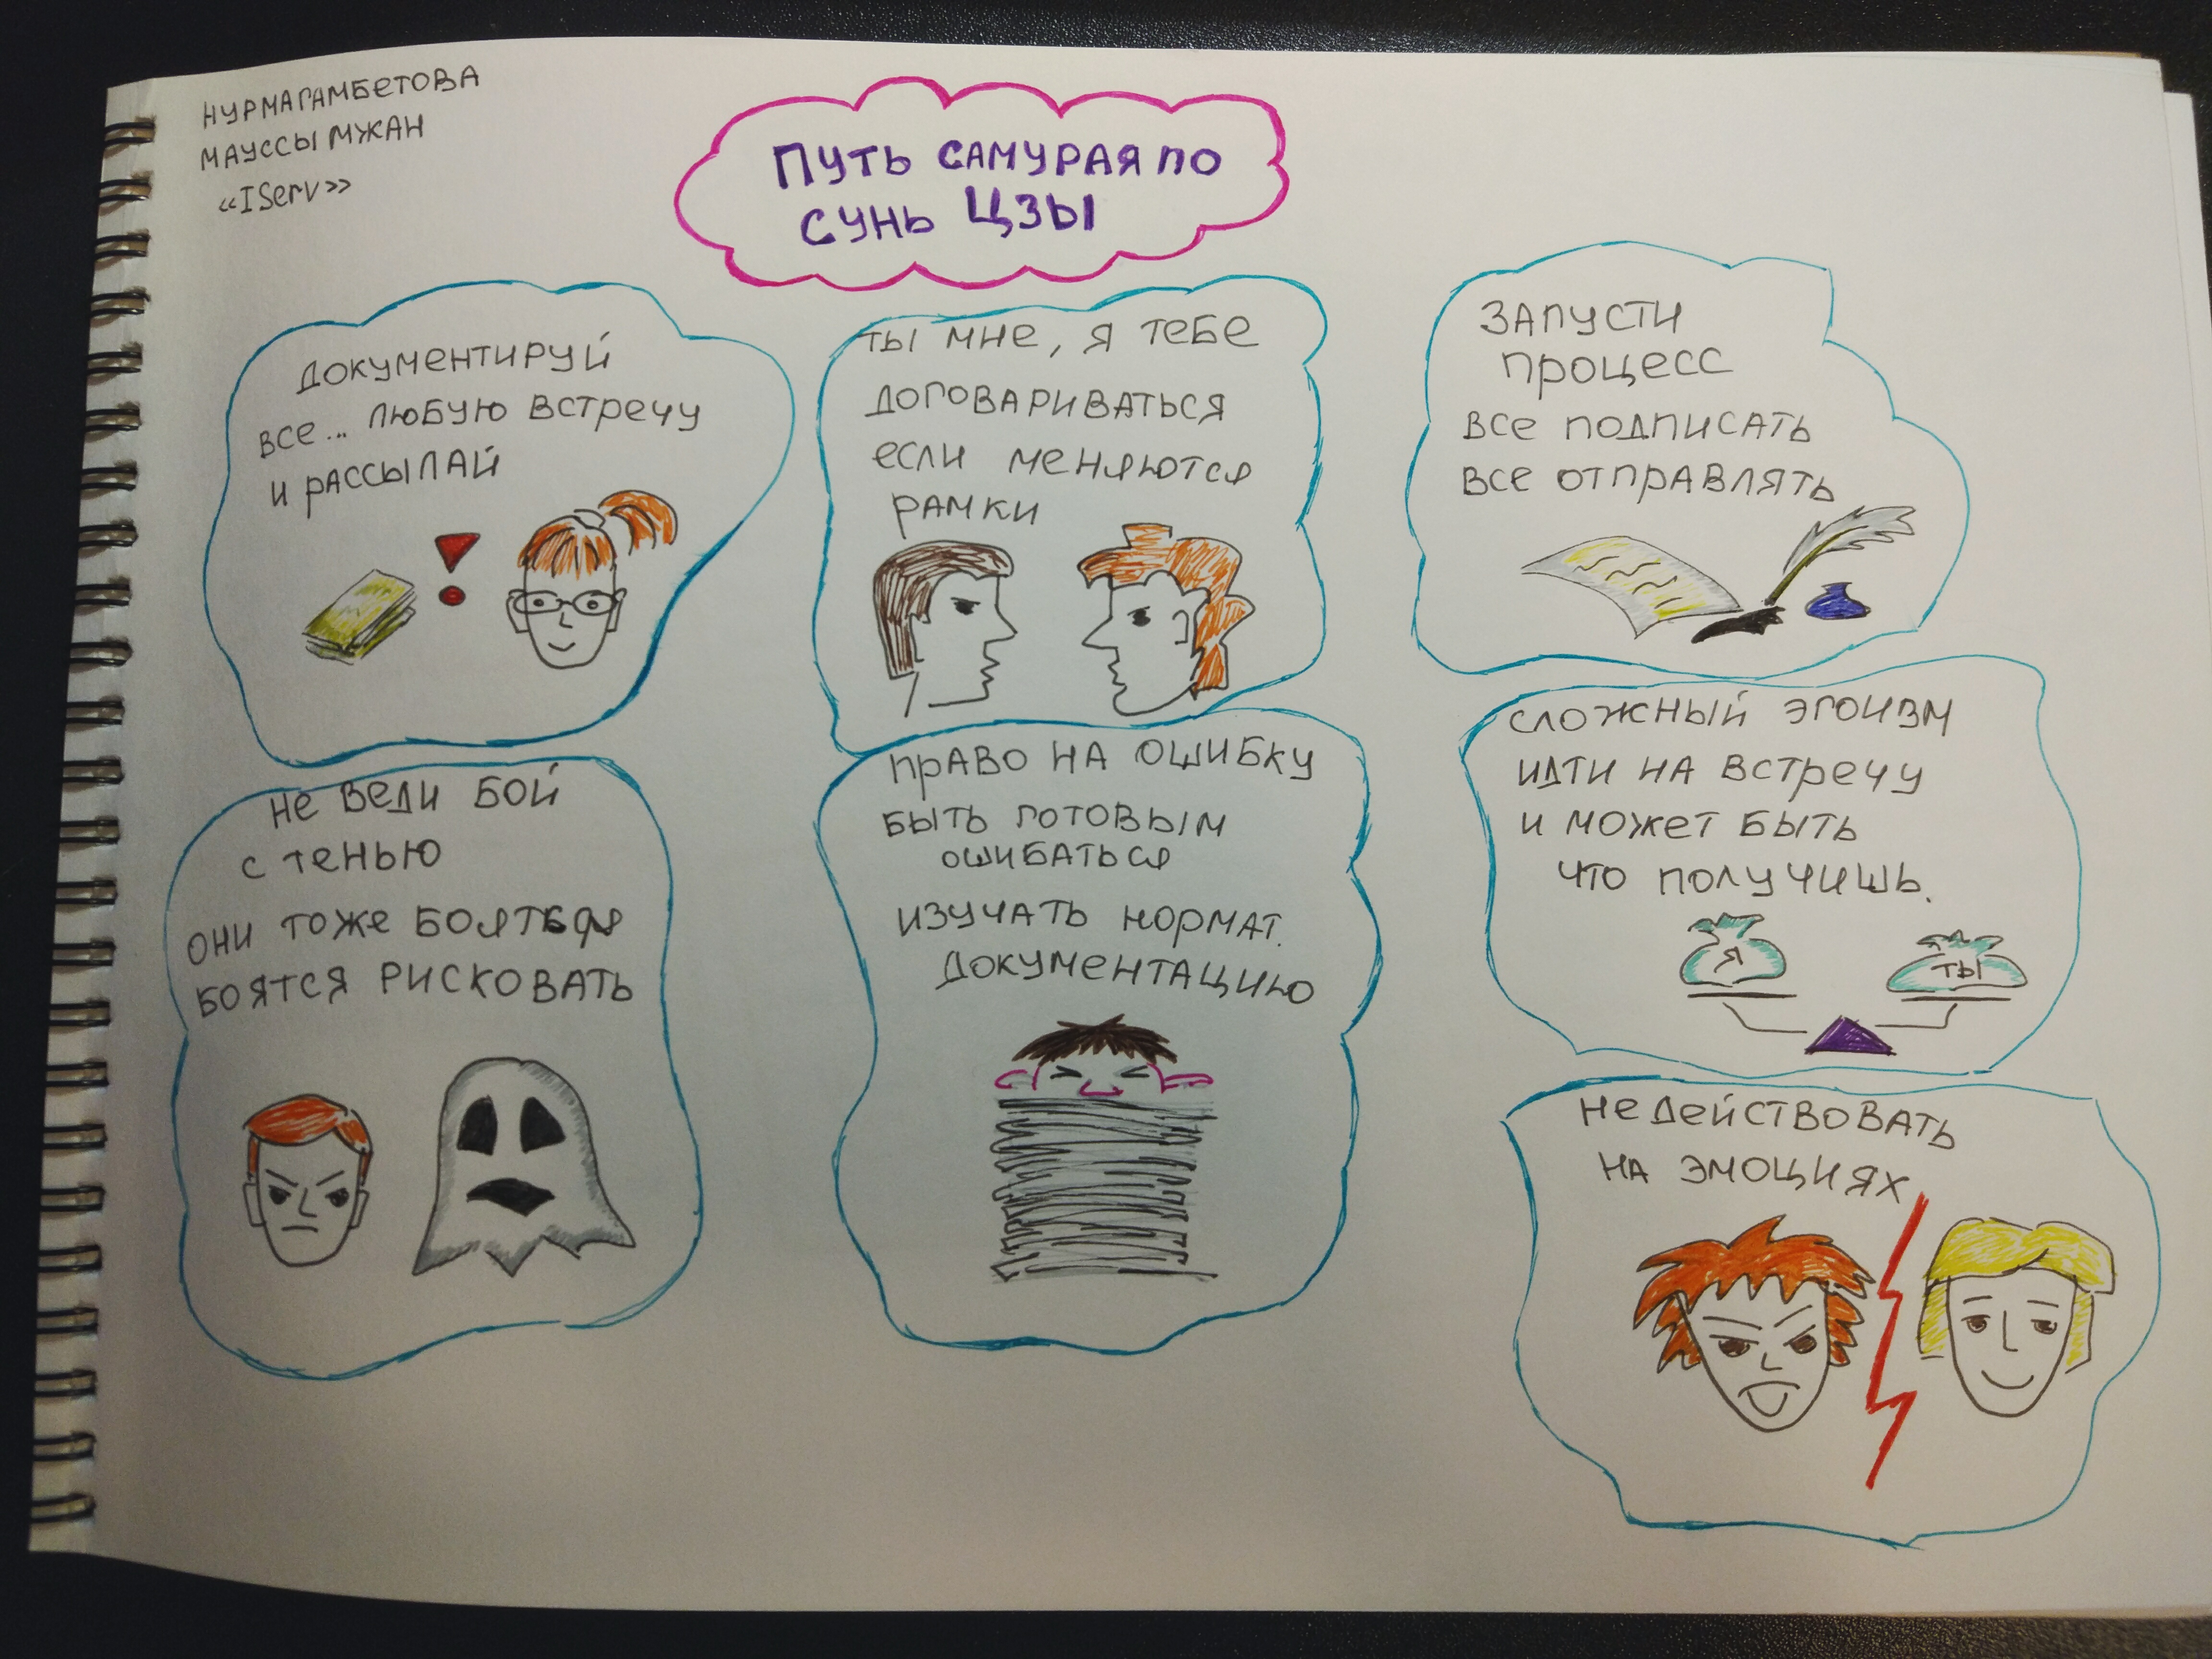 НУРМАГАМБЕТОВА
МАУССЫМЖАН
«IServ»
ПУТЬ САМУРАЯ ПО
СУНЬ ЦЗЫ
ДОКУМЕНТИРУЙ
ВСЕ... ЛЮБУЮ ВСТРЕЧУ
И РАССЫЛАЙ
ТЫ МНЕ, Я ТЕБЕ
ДОГОВАРИВАТЬСЯ
ЕСЛИ МЕНЯЮТСЯ
РАМКИ
ЗАПУСТИ
ПРОЦЕСС
ВСЕ ПОДПИСАТЬ
ВСЕ ОТПРАВЛЯТЬ
НЕ ВЕДИ БОЙ
С ТЕНЬЮ
ОНИ ТОЖЕ БОЯТЬСЯ
БОЯТСЯ РИСКОВАТЬ
ПРАВО НА ОШИБКУ
БЫТЬ ГОТОВЫМ
ОШИБАТЬСЯ
ИЗУЧАТЬ НОРМАТ.
ДОКУМЕНТАЦИЮ
СЛОЖНЫЙ ЭГОИЗМ
ИДТИ НА ВСТРЕЧУ
И МОЖЕТ БЫТЬ
ЧТО ПОЛУЧИШЬ.
Я
ТЫ
НЕ ДЕЙСТВОВАТЬ
НА ЭМОЦИЯХ